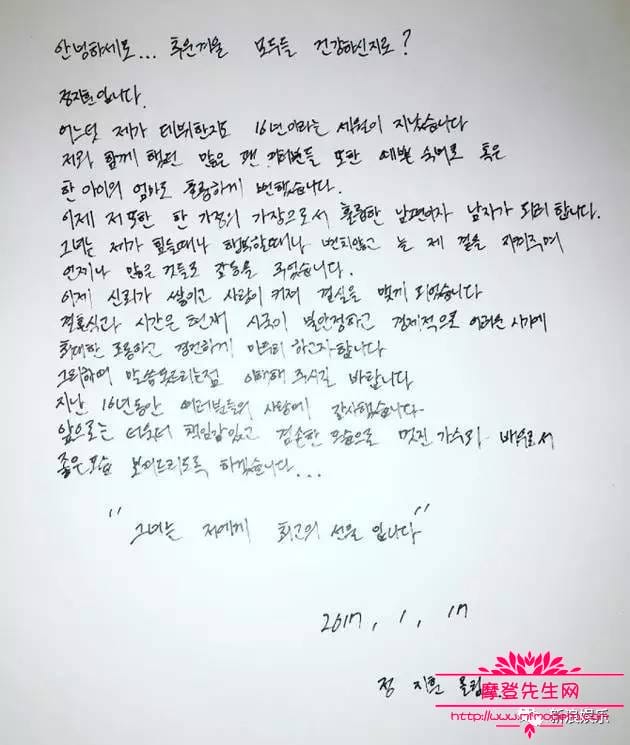 안녕하세요... 추운겨울 모두들 건강하신지요?
정지훈입니다.
어느덧 제가 데뷔한지도 16년이라는 세월이 지났습니다
저와 함께 했던 많은 팬 여러분들 또한 예쁜 숙녀로 혹은
한 아이의 엄마로 훌륭하게 변했습니다.
이제 저 또한 한 가정의 가장으로서 훌륭한 남편이자 남자가 되려 합니다.
그녀는 제가 힘들때나 행복할때나 변치않고 늘 제 곁을 지켜주며
언제나 많은 것들로 감동을 주었습니다.
이제 신뢰가 쌓이고 사랑이 커져 결실을 맺게 되었습니다
결혼식과 시간은 현재 시국이 불안정하고 경제적으로 어려운 시기에
최대한 조용하고 경건하게 마무리 하고자합니다
그리하여 말씀못드리는점 이해해 주시길 바랍니다
지난 16년동안 여러분들의 사랑에 감사했습니다
앞으로는 더욱더 책임감있고 겸손한 모습으로 멋진 가수와 배우로서
좋은모습 보여드리도록 하겠습니다...
"그녀는 저에게 최고의 선물 입니다"
2017, 1, 17
정 지훈 올림.
摩登先生网
新浪娱乐